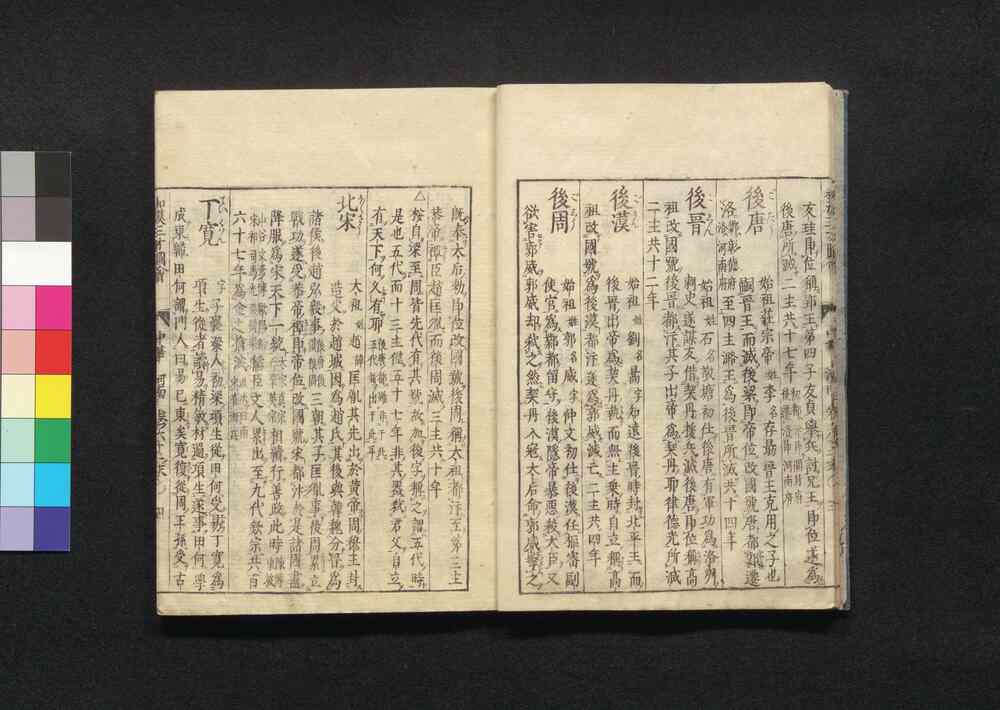 友珪即位稱郢王第四子友貞舉兵討兄王即位遂爲
後唐所滅二主共十七年
後唐
始祖莊宗帝 姓李名存勗晉王克用之子也
嗣晉王而滅後梁即帝位改國號唐都
洛 至四主潞王爲後晉所滅共十四年
後晉
始祖 姓石名敬瑭初仕後唐有軍功爲洛州
刺史遂謀友借契丹援兵滅後唐即位稱高
祖改國號後晉都汴其子出帝爲契丹耶律德光所滅
二主共十二年
後漢
始祖 姓劉名暠字知遠後晉時封北平王而
後晉出帝爲契丹被而無主乗時自立稱高
祖改國號爲後漢都汴遂爲郭威滅亡二主共四年
後周
始祖 姓郭名威字仲文初仕後漢任樞密副
使官爲鄴都留守後漢隱帝暴惡殺大臣又
欲害郭威郭威却弑之然契丹入寇太后命郭威撃之
既奉太后勅即位改國號後周稱太祖都汴至第三主
恭帝孺臣趙匡胤而後周滅三主共十年
△按自梁至周皆先代有其號故加後字稱之謂五代時
是也五代而十三主僅五十七年非其噐弑君父自立
有天下何久有耶
北宋
太祖 姓趙 諱匡胤其先出於黄帝周穆王封
造父於趙城因爲趙氏其後與韓魏分晉爲
諸侯後趙弘殷事 三朝其子匡胤事後周累立
戰功遂受恭帝禪即帝位改國號宋都汴於是諸國盡
降服爲宋天下一統 相續行善政此時
臣文人累出至九代欽宗共百
六十七年爲金之
丁寛
字子襄梁人初梁項生從田何受易丁寛爲
項生從者讀易精敏材過項生遂事田何學
成東歸田何謂門人曰易已東矣寛復從周王孫受古